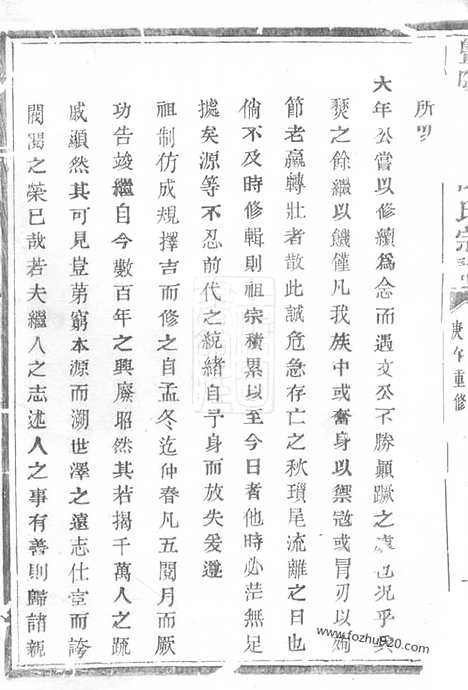 氏宗譜
庚午重修
所
大年公嘗以修續為念而遇文公不勝顛蹶之虞也況乎
燹之餘繼以饑僅凡我族中或奮身以禦寇或冒刃以殉
節老羸轉壯者散此誠危急存亡之秋瑣尾流離之日也
倘不及時修輯則祖宗積累以至今日者他時必茫無足
據矣源等不忍前代之統緒自予身而放失爰遵
祖制仿成規擇吉而修之自孟冬迄仲春凡五閱月而厥
功告竣繼自今數百年之興廢昭然其若揭千萬人之疏
戚顯然其可見豈第窮本源而溯世澤之遠志仕宦而誇
閥閱之榮已哉若夫繼人之志述人之事有善則歸諸親
www.fozhu920.com